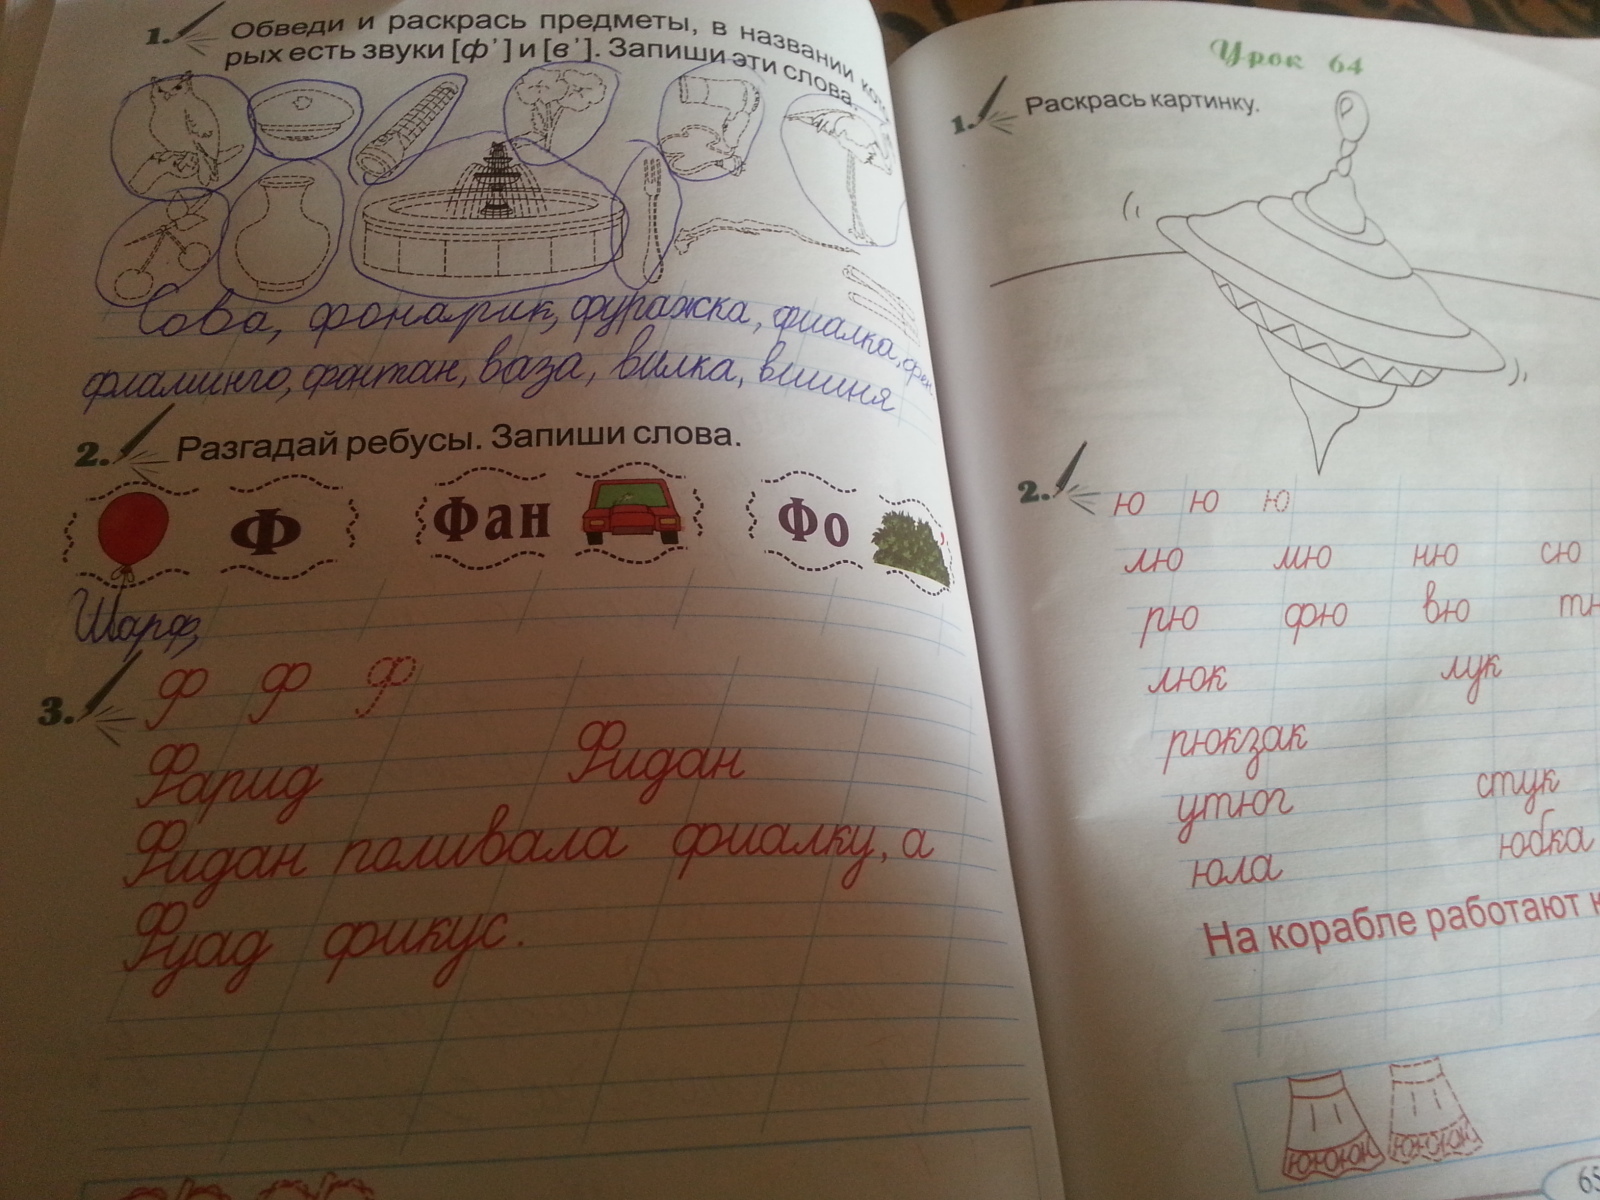 1. Обведи и раскрась предметы, в названии кото
рых есть звуки [ф'] и [в']. Запиши эти слова.
Сова, фонарик, фуражка, фиалка, фен
фламинго, фонтан, ваза, вилка, вишня
2. Разгадай ребусы. Запиши слова.
Ф Фан Фо ,
Шарф,
3. Ф Ф Ф
Фарид Фидан
Фидан поливала фиалку, а
Фуад фикус.
Урок 64
1. Раскрась картинку.
2. ю ю ю
лю мю ню сю
рю фю вю
люк лук
рюкзак
утюг стук
юла юбка
На корабле работают
65